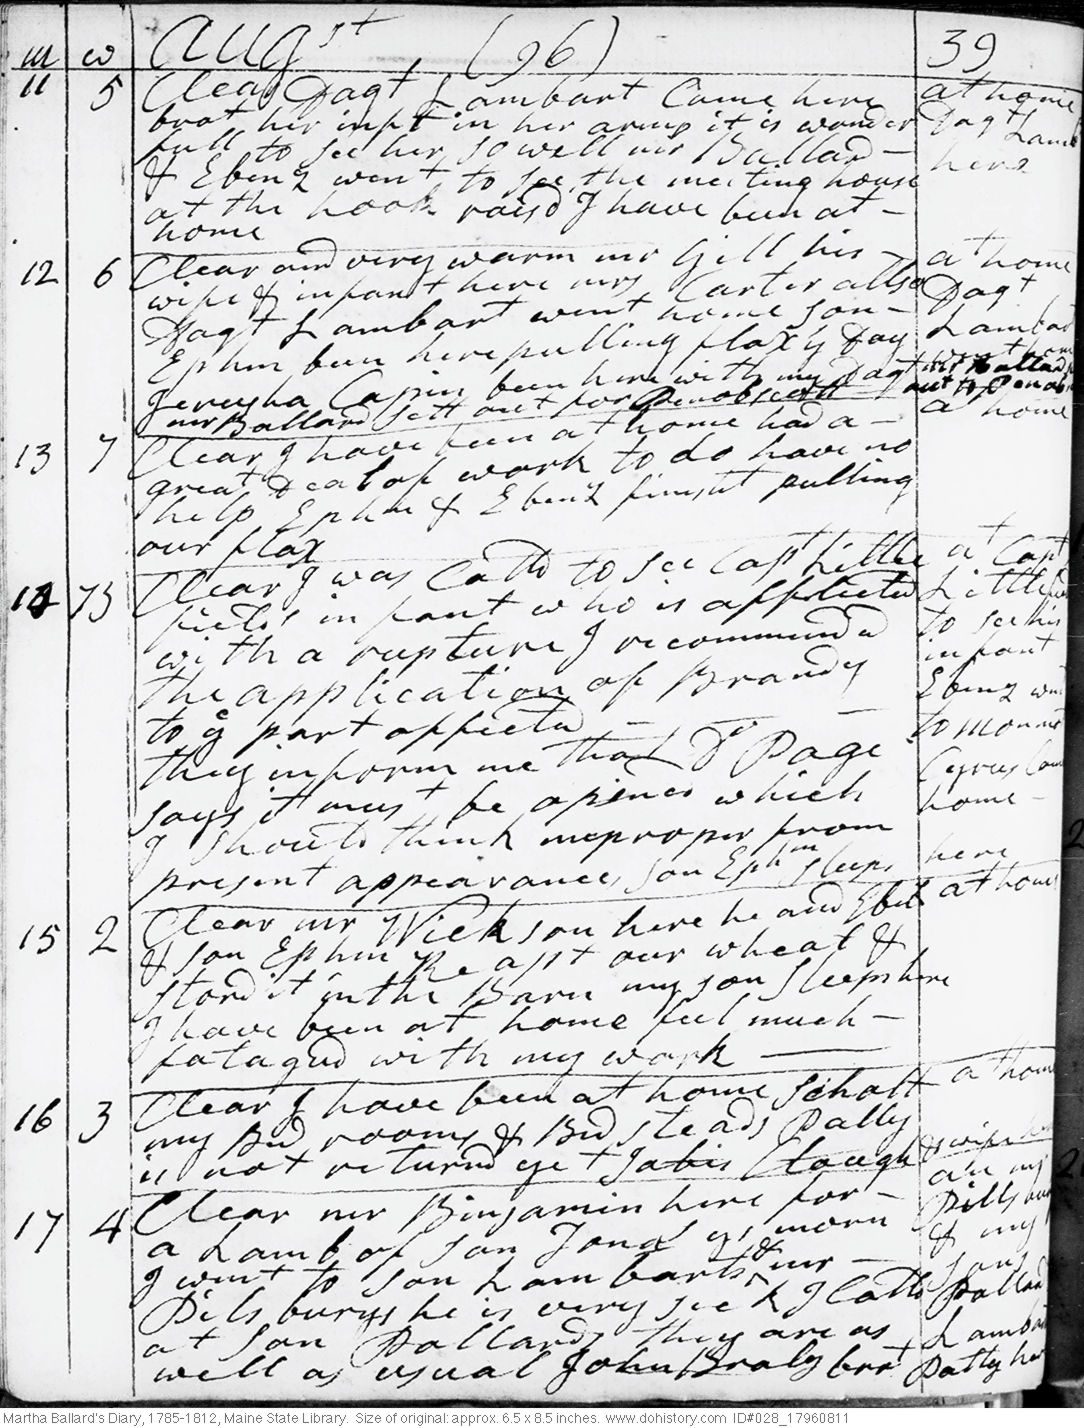 m w Augst (96) 39
11 5 Clear Dagt Lambart Came here at home
brot her inft in her arms it is wonder Dagt Lamb
full to see her so well mr Ballard – here
& Ebenz went to see the meeting house
at the hook raisd I have been at –
home
12 6 Clear and very warm mr Gill his – at home
wife & infant here mrs Carter allso Dagt
Dagt Lambart went home son – Lambart
Ephm been here pulling flax ys Day went home
Jerusha Capin been here with my Dagt mr Ballard
mr Ballard sett out for Penobscott out to Penob
13 7 Clear I have been at home had a – at home
great Deal of work to do have no
help Ephm & Ebenz finisht pulling
our flax
14 Clear I was Calld to see Capt Little at Capt
fields infant who is afflicted Littlefield
with a rupture I recommend to see his
the application of Brandy infant
to ye part affected – – Ebenz went
they inform me that Dr Page to
says it must be opined which Cyrus Came
I should think improper from home –
present appearances son Ephm sleeps here
15 2 Clear mr Wickson here he and Eben at home
& son Ephm Reapt our wheat &
stord it in the Barn my son sleeps here
I have been at home feel much –
fatagud with my work
16 3 Clear I have been at home Schalt at home
my Bed rooms & Bed steads Pally
is not returnd yet Jabis Clough & wife here
17 4 Clear mr Binjamin here for – at my
a Lamb of son Jona ys morn Pills burys
I went to son Lambarts & mr – & my
Pils burys he is very sick I Calld sons
at Son Pollards they are as Pollard
well as usual John Braly brot Lambart
Patty here